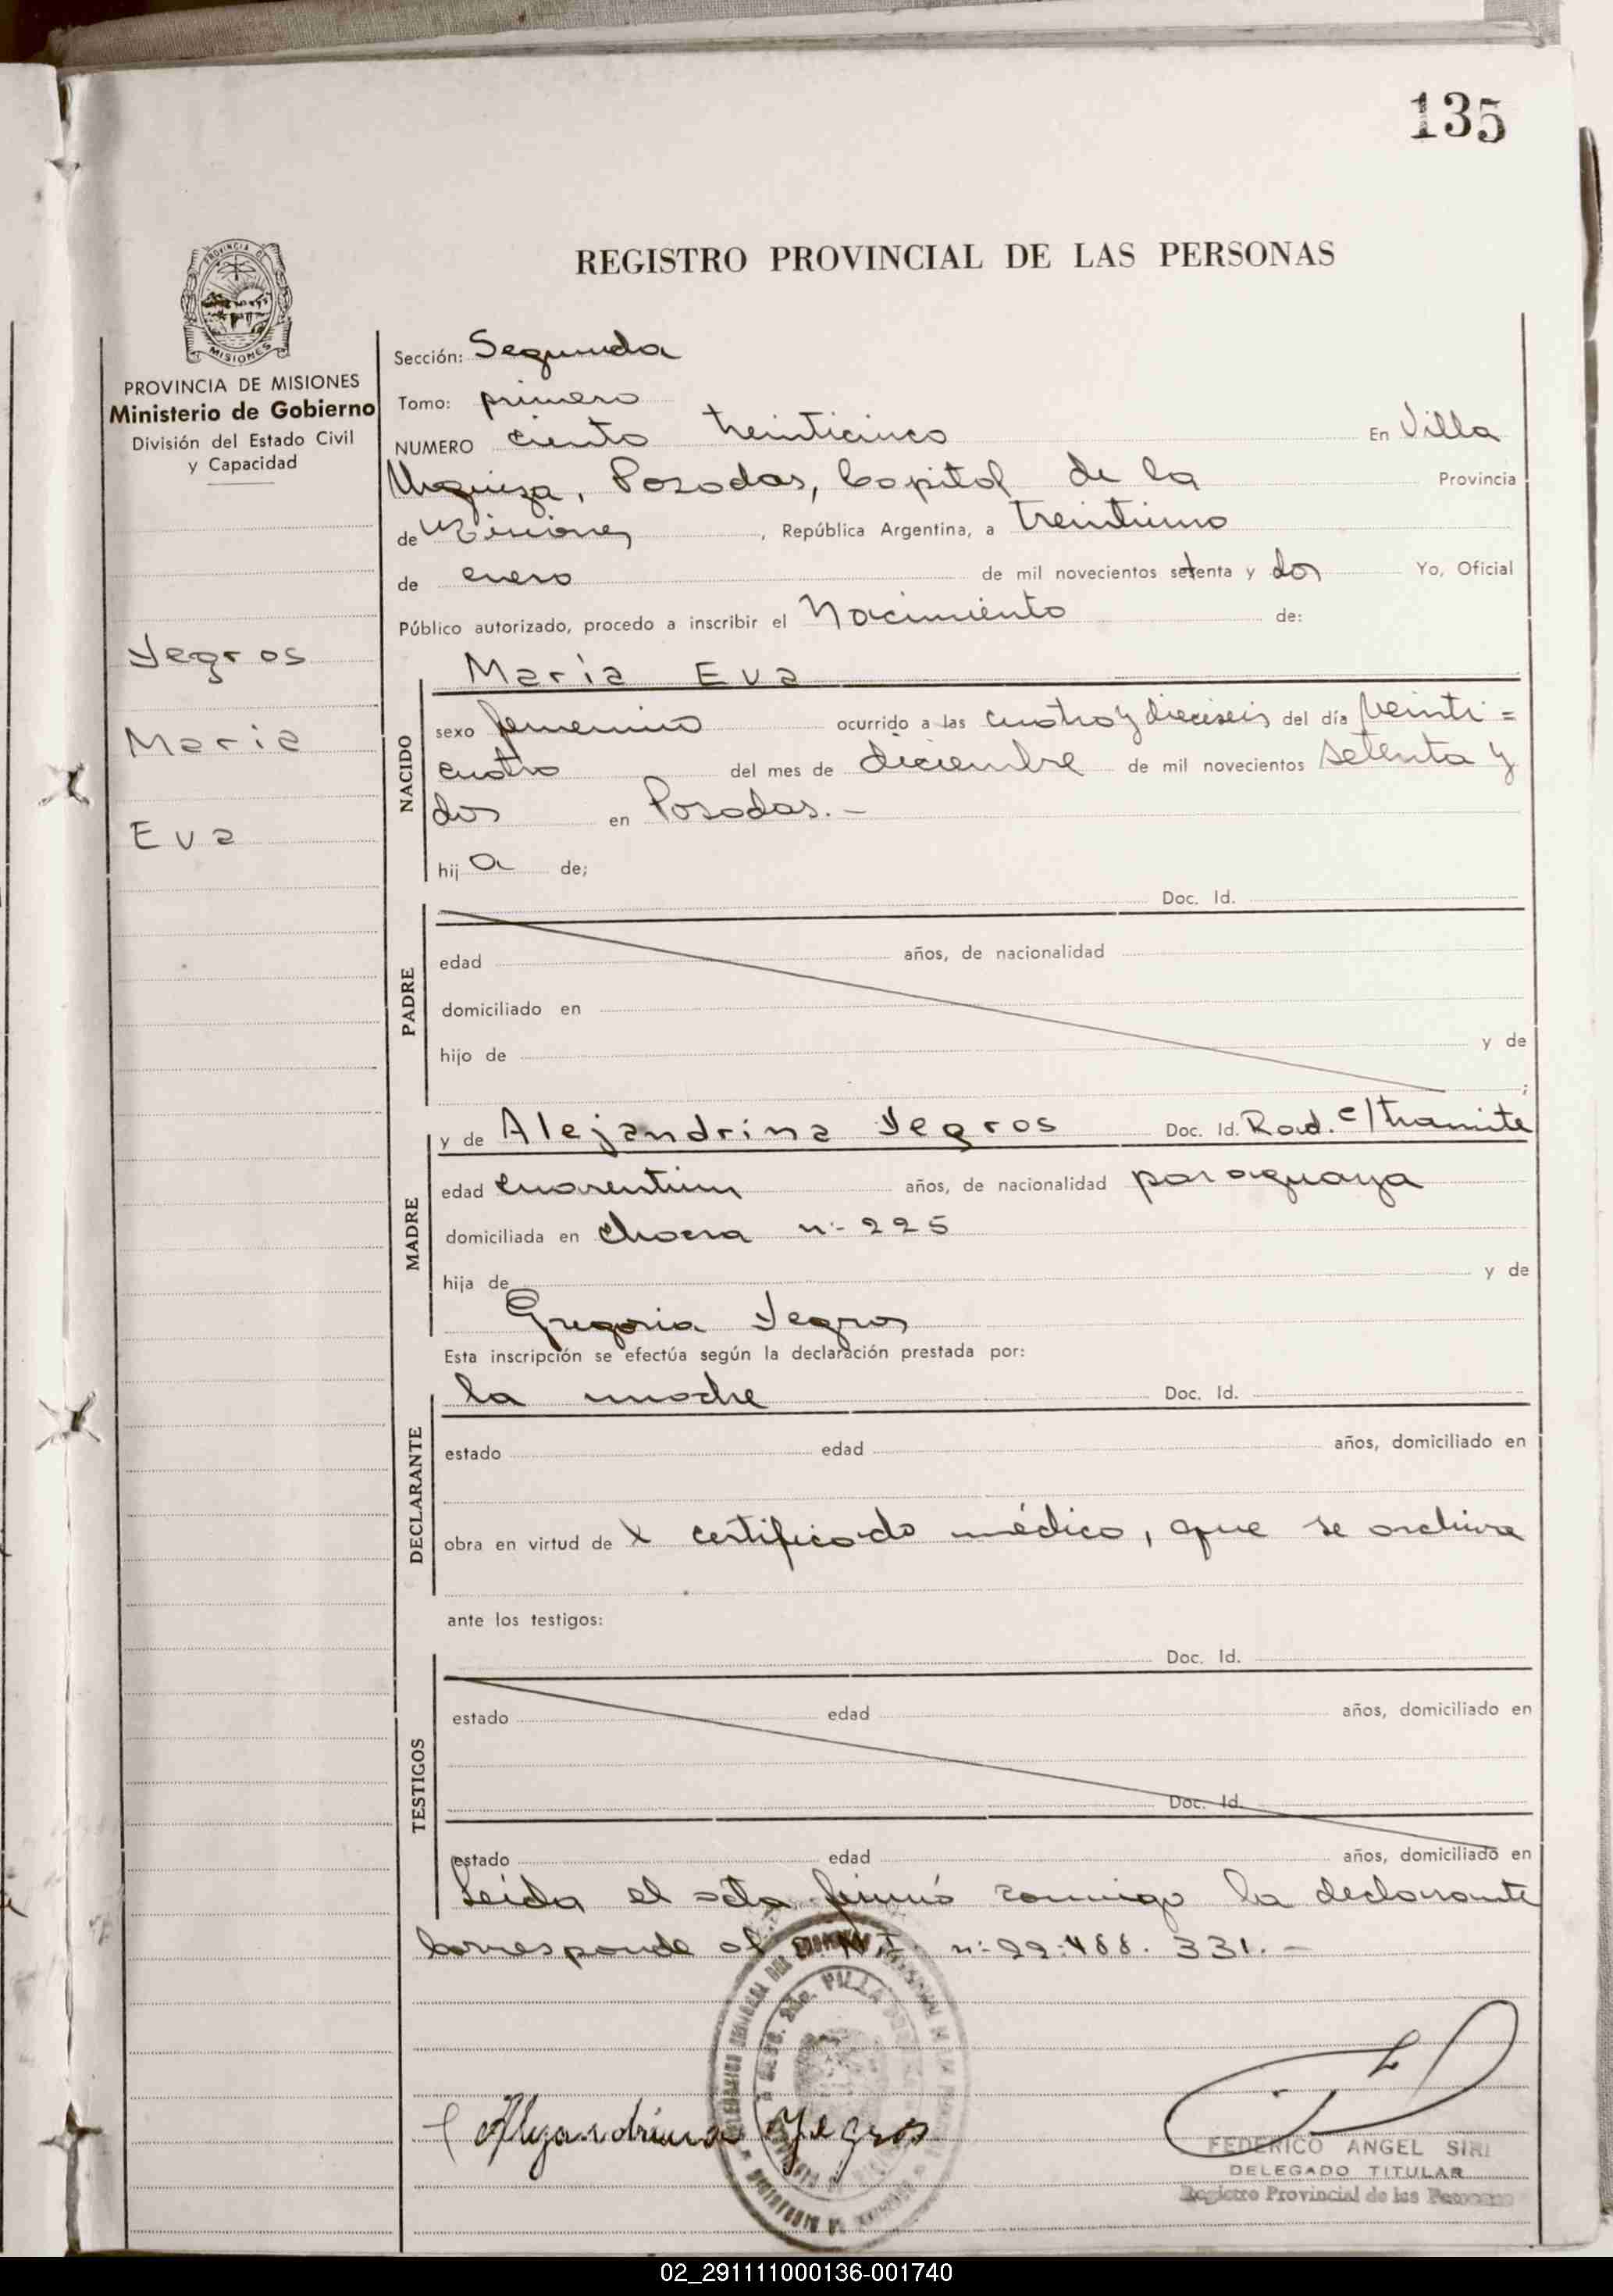 135
REGISTRO PROVINCIAL DE LAS PERSONAS
PROVINCIA DE MISIONES
Ministerio de Gobierno
División del Estado Civil
y Capacidad
Yegros
Maria
Eva
Sección: Segunda
Tomo: primero
NUMERO ciento treinticinco En Villa
Urquiza, Posadas, Capital de la Provincia
de Misiones, República Argentina, a treintiuno
de enero de mil novecientos setenta y dos Yo, Oficial
Público autorizado, procedo a inscribir el Nacimiento de:
NACIDO
Maria Eva
sexo femenino ocurrido a las cuatro y dieciseis del día veinti=
cuatro del mes de diciembre de mil novecientos setenta y
dos en Posadas.-
hij a de;
PADRE
Doc. Id.
edad años, de nacionalidad
domiciliado en
hijo de y de
;
MADRE
y de Alejandrina Yegros Doc. Id. Rad. c/tramite
edad cuarentiun años, de nacionalidad paraguaya
domiciliada en chacra n:- 225
hija de y de
Gregoria Yegros
Esta inscripción se efectúa según la declaración prestada por:
DECLARANTE
la madre Doc. Id.
estado edad años, domiciliado en
obra en virtud de X certificado médico, que se archiva
ante los testigos:
TESTIGOS
Doc. Id.
estado edad años, domiciliado en
Doc. Id.
estado edad años, domiciliado en
Leida el acta firmó conmigo la declarante
Corresponde al n:- 22.488.331.-
Alejandrina Yegros
FEDERICO ANGEL SIRI
DELEGADO TITULAR
Registro Provincial de las Personas
02_291111000136-001740